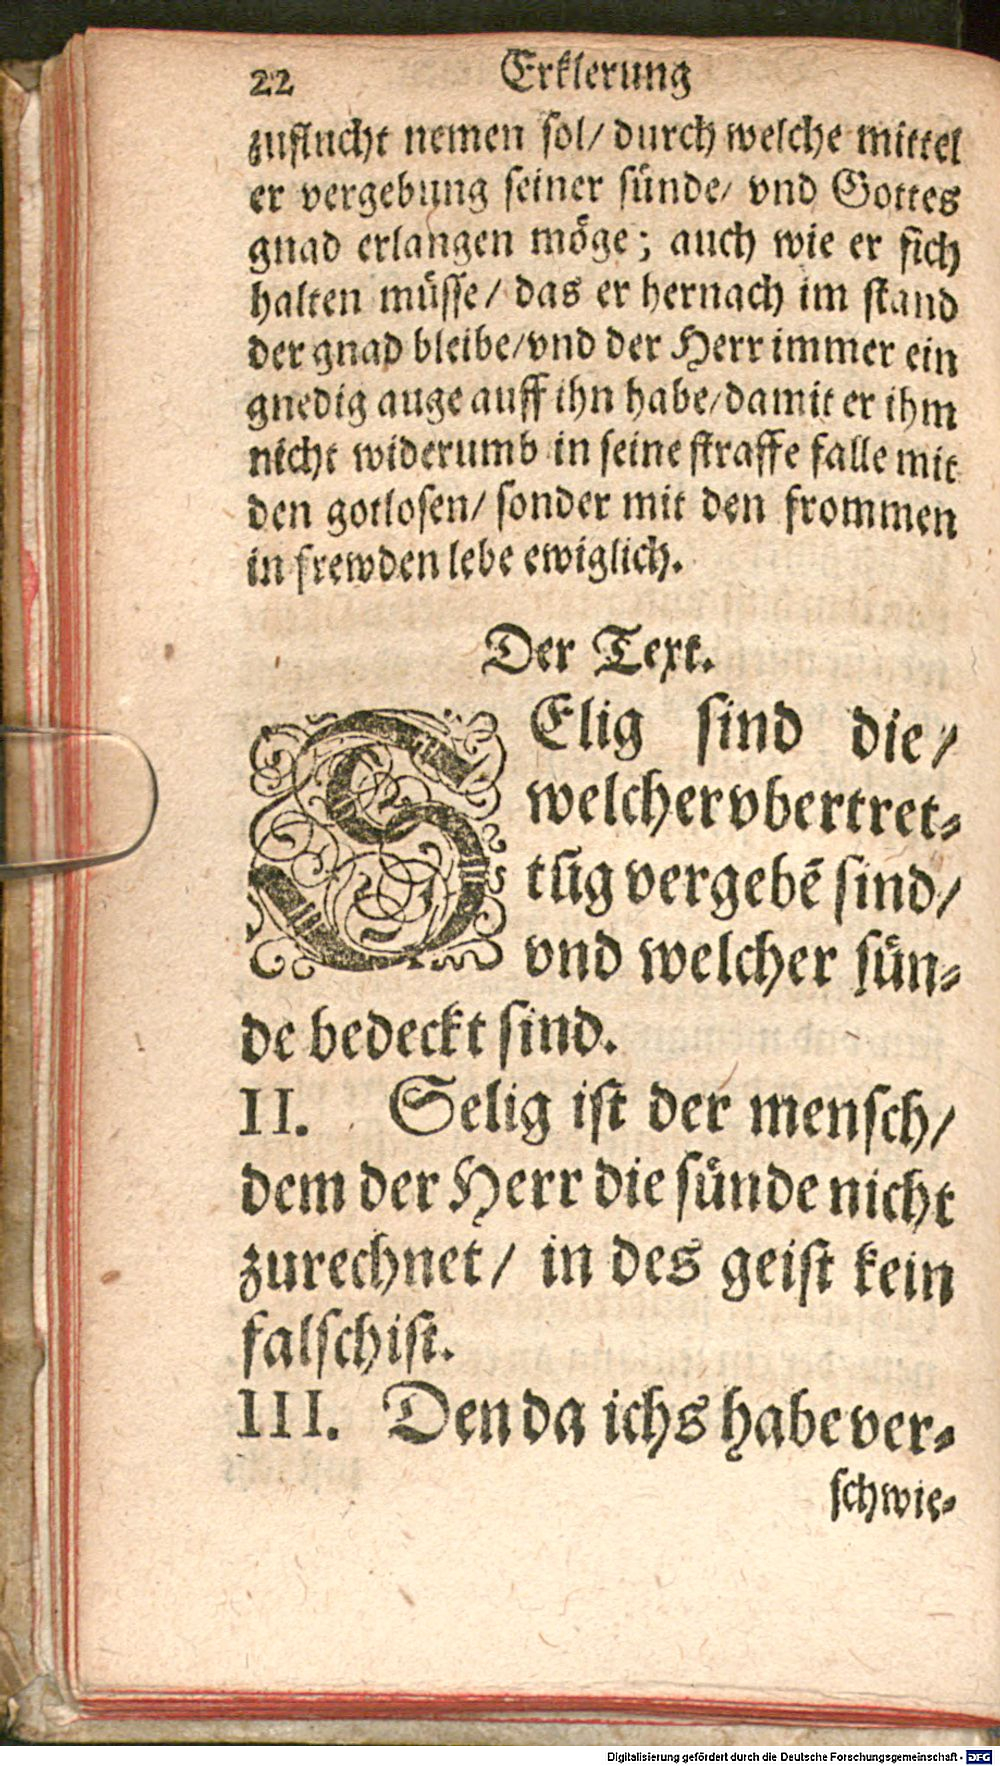 22 Erklerung
zuflucht nemen sol/ durch welche mittel
er vergebung seiner sünde/ vnd Gottes
gnad erlangen möge; auch wie er sich
halten müsse/ das er hernach im stand
der gnad bleibe/vnd der Herr immer ein
gnedig auge auff ihn habe/damit er ihm
nicht widerumb in seine straffe falle mit
den gotlosen/ sonder mit den frommen
in frewden lebe ewiglich.
Der Text.
SElig sind die/
welcher vbertret-
tūg vergebē sind/
vnd welcher sün-
de bedeckt sind.
II. Selig ist der mensch/
dem der Herr die sünde nicht
zurechnet/ in des geist kein
falsch ist.
III. Den da ichs habe ver-
schwie-
Digitalisierung gefördert durch die Deutsche Forschungsgemeinschaft - DFG